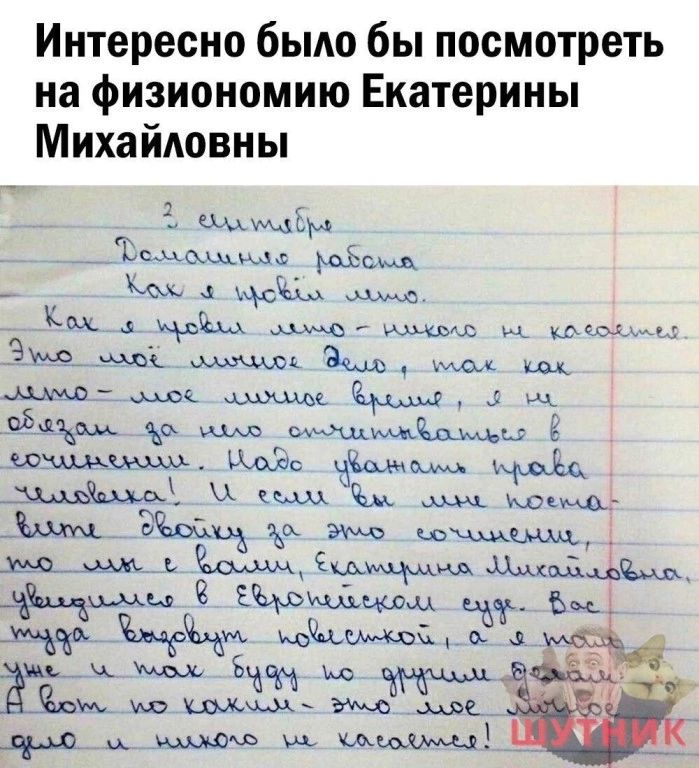 Интересно было бы посмотреть
на физиономию Екатерины
Михайловны
3 сентября
Домашняя работа
Как я провёл лето.
Как я провел лето - никого не касается.
Это моё личное дело, так как
лето - мое личное время, я не
обязан за него отчитываться в
сочинении. Надо уважать права
человека! И если Вы мне поста-
вите двойку за это сочинение,
то мы с вами, Екатерина Михайловна,
увидимся в Европейском суде. Вас
туда вызовут повесткой, а я там
уже и так буду по другим делам.
А вот по каким - это мое личное
дело и никого не касается!
ШУТНИК